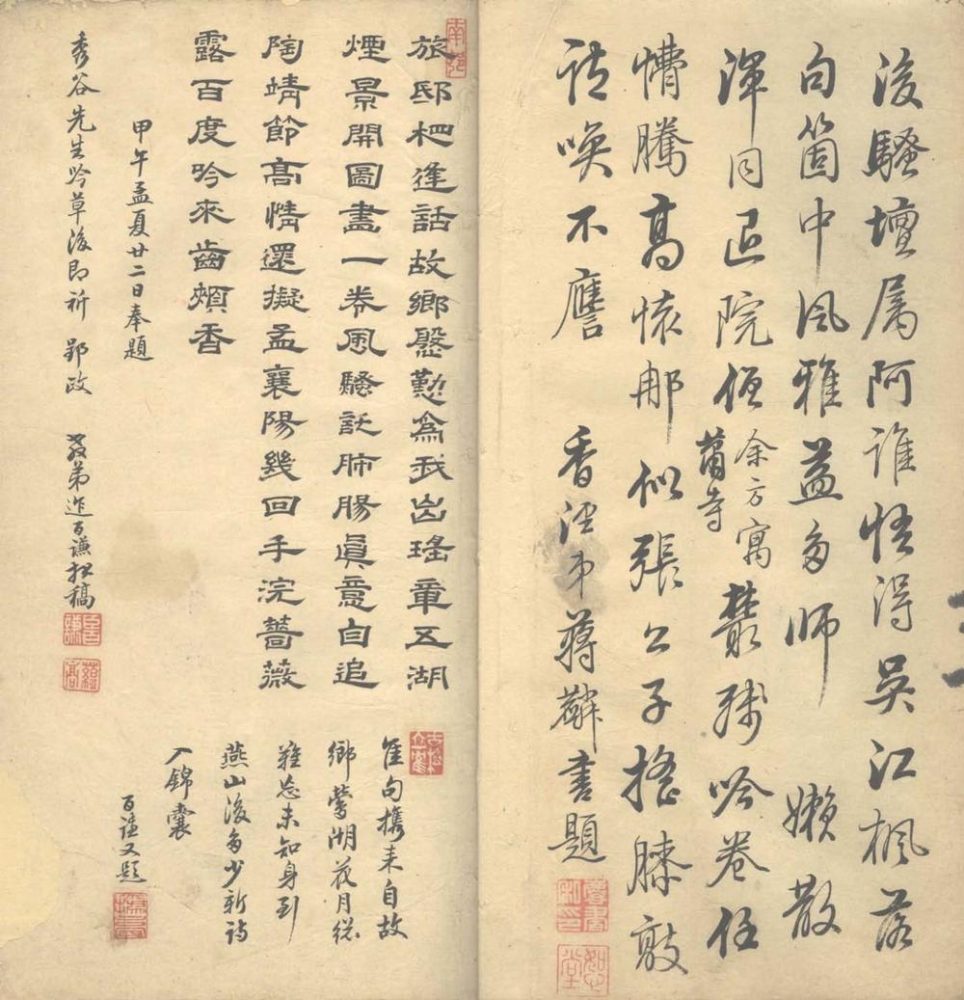 後騷壇属阿誰悟得吳江楓落
句箇中风雅益多師　嫩散
渾同退院僧余方寓蕭寺叢殘吟卷任
懵騰高懷那似張公子搖膝敲
詩喚不譍　香涇弟蔣麟書題
旅邸栖逢話故鄉慇懃為我出瑤章五湖
煙景開圖畫一卷風騷託肺腸真意自追
陶靖節高情還擬孟襄陽幾回手浣薔薇
露百度吟來齒頰香
甲午孟夏廿二日奉題
秀谷先生吟草後即祈 郢政　教弟百謙拟稿
隹句攜来自故
鄉鶯湖花月總
難忘未知身到
燕山後多少新詩
入錦囊
百謙又題